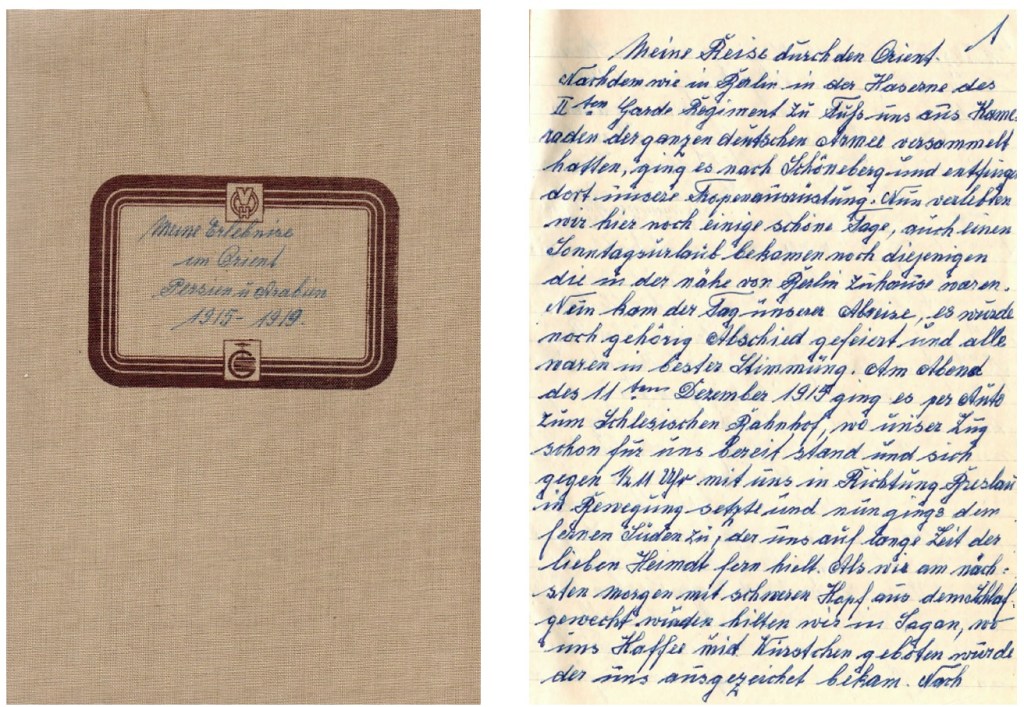 Meine Erlebnise
im Orient
Persien u Arabien
1915-1919.
1
Meine Reise durch den Orient.
Nachdem wir in Berlin in der Kaserne des
II ten Garde Regiment zu Fuß uns aus Kame-
raden der ganzen deutschen Armee versammelt
hatten, ging es nach Schöneberg und entfingen
dort unsere Tropenausrüstung. Nun verlebten
wir hier noch einige schöne Tage, auch einen
Sonntagsurlaub bekamen noch diejenigen
die in der nähe von Berlin zuhause waren.
Nun kam der Tag unserer Abreise, es wurde
noch gehörig Abschied gefeiert und alle
waren in bester Stimmung. Am Abend
des 11 ten Dezember 1915 ging es per Auto
zum Schlesischen Bahnhof, wo unser Zug
schon für uns bereit stand und sich
gegen ½ 11 Uhr mit uns in Richtung Breslau
in Bewegung setzte und nun gings dem
fernen Süden zu, der uns auf lange Zeit der
lieben Heimat fern hielt. Als wir am näch-
sten morgen mit schweren Kopf aus dem Schlaf
geweckt wurden hilten wir in Sagan, wo
uns Kaffee mid Würstchen geboten wurde
der uns ausgezeichet bekam. Nach